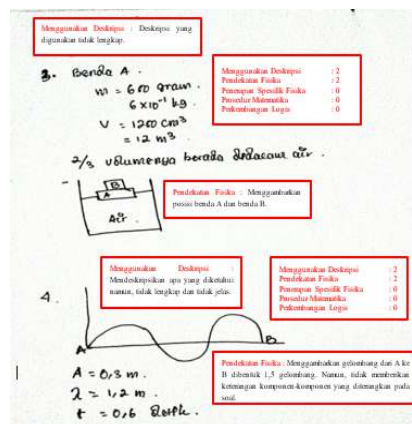 Menggunakan Deskripsi : Deskripsi yang
digunakan tidak lengkap.
3. Benda A.
m = 600 gram.
6 x 10⁻¹ kg.
V = 1200 cm³
= 12 m³
2/3 volumenya berada didalam air.
Menggunakan Deskripsi : 2
Pendekatan Fisika : 2
Penerapan Spesifik Fisika : 0
Prosedur Matematika : 0
Perkembangan Logis : 0
B
A
Air
Pendekatan Fisika : Menggambarkan
posisi benda A dan benda B.
Menggunakan Deskripsi :
Mendeskripsikan apa yang diketahui
namun, tidak lengkap dan tidak jelas.
Menggunakan Deskripsi : 2
Pendekatan Fisika : 2
Penerapan Spesifik Fisika : 0
Prosedur Matematika : 0
Perkembangan Logis : 0
4.
A
B
A = 0,3 m.
λ = 1,2 m.
t = 0,6
Pendekatan Fisika : Menggambarkan gelombang dari A ke
B dibentuk 1,5 gelombang. Namun, tidak memberikan
keterangan komponen-komponen yang diterangkan pada
soal.